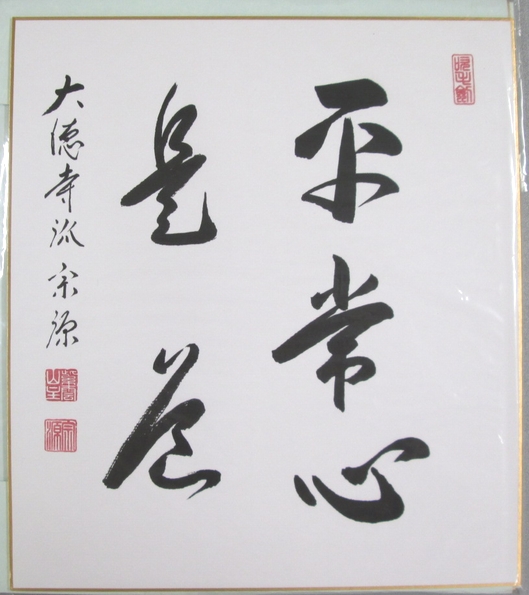 平常心
是道
大徳寺派宗源